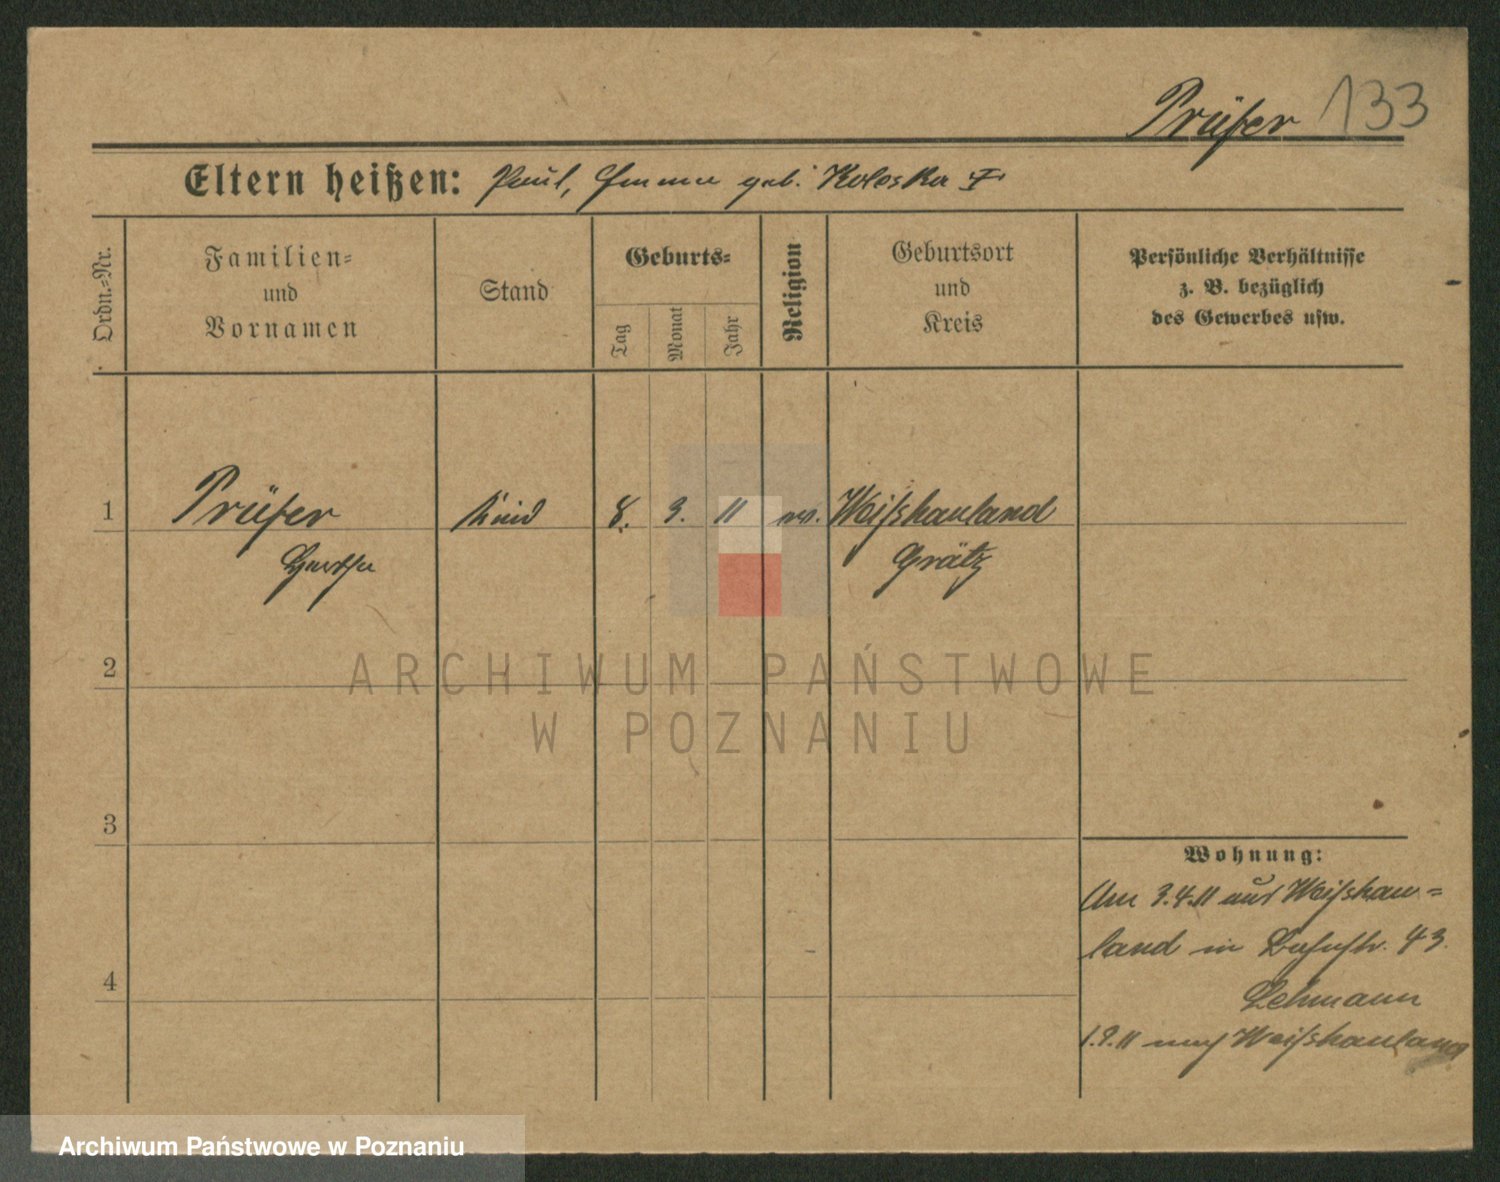 Prüfer 133
Eltern heißen: Paul, Emma geb. Koloska
Ordn.-Nr.
Familien-
und
Vornamen
Stand
Geburts-
Tag
Monat
Jahr
Religion
Geburtsort
und
Kreis
Persönliche Verhältnisse
z. B. bezüglich
des Gewerbes usw.
1 Prüfer Kind 8. 3. 11 Weißhauland
Hertha Grätz
2
ARCHIWUM PAŃSTWOWE
W POZNANIU
3
Wohnung:
Am 3.4.11 aus Weißhau-
land in Bahnstr. 43.
4
Lehmann
1.9.11 nach Weißhauland
Archiwum Państwowe w Poznaniu